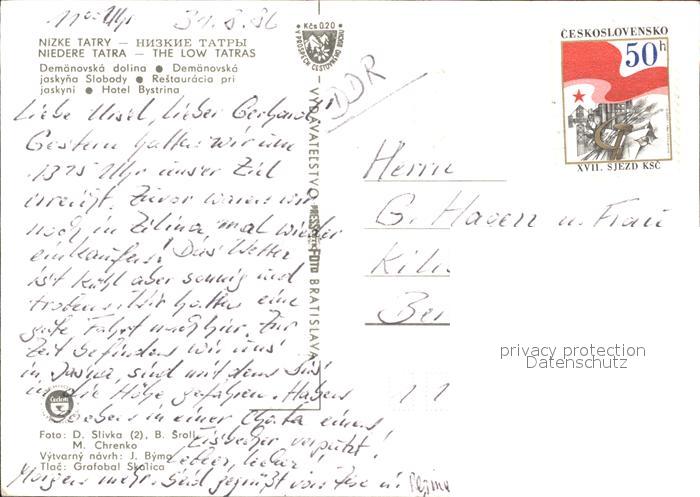 11°° Uhr 31.8.86
NÍZKE TATRY — НИЗКИЕ ТАТРЫ
NIEDERE TATRA — THE LOW TATRAS
Demänovská dolina ● Demänovská
jaskyňa Slobody ● Reštaurácia pri
jaskyni ● Hotel Bystrina
Liebe Ursel, lieber Gerhard!
Gestern hatten wir um
13 Uhr unser Ziel
erreicht. Zuvor waren wir
noch in Žilina mal wieder
einkaufen! Das Wetter
ist kühl aber sonnig und
trocken. Wir hatten eine
gute Fahrt nach hier. Zur
Zeit befinden wir uns
in Jasna, sind mit dem
in die Höhe gefahren. Haben
soeben in einer Chata einen
Eisbecher verputzt!
Lecker, lecker!
Morgen mehr. Seid gegrüßt von u.
Foto: D. Slivka (2), B. Šroll
M. Chrenko
Výtvarný návrh: J. Býmo
Tlač: Grafobal Skalica
Kčs 0,20
V PROSPECH CESTOVNÉHO RUCHU
VYDAVATEĽSTVO PRESSFOTO BRATISLAVA
DDR
ČESKOSLOVENSKO
50h
XVII. SJEZD KSČ
Herrn
G. Hagen u. Frau
privacy protection
Datenschutz